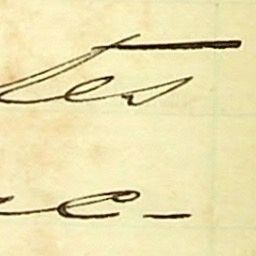 tes
e-